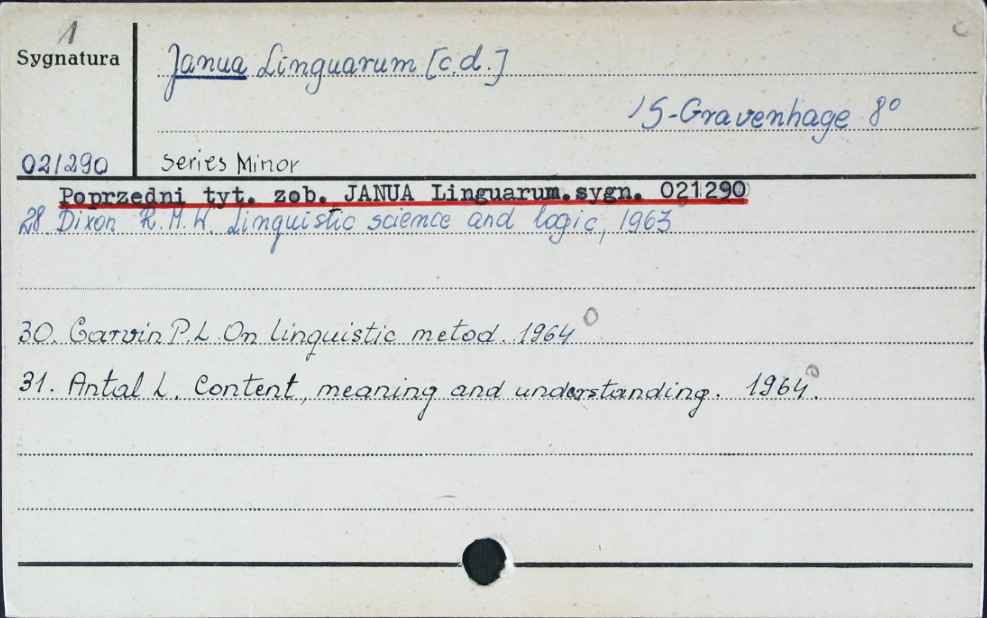 1
Sygnatura
Janua Linguarum [c.d.]
's-Gravenhage 8°
021290
Series Minor
Poprzedni tyt. zob. JANUA Linguarum.sygn. 021290
28 Dixon R.M.W. Linguistic science and logic, 1963
30. Garvin P.L. On linguistic metod. 1964
31. Antal L. Content, meaning and understanding. 1964.